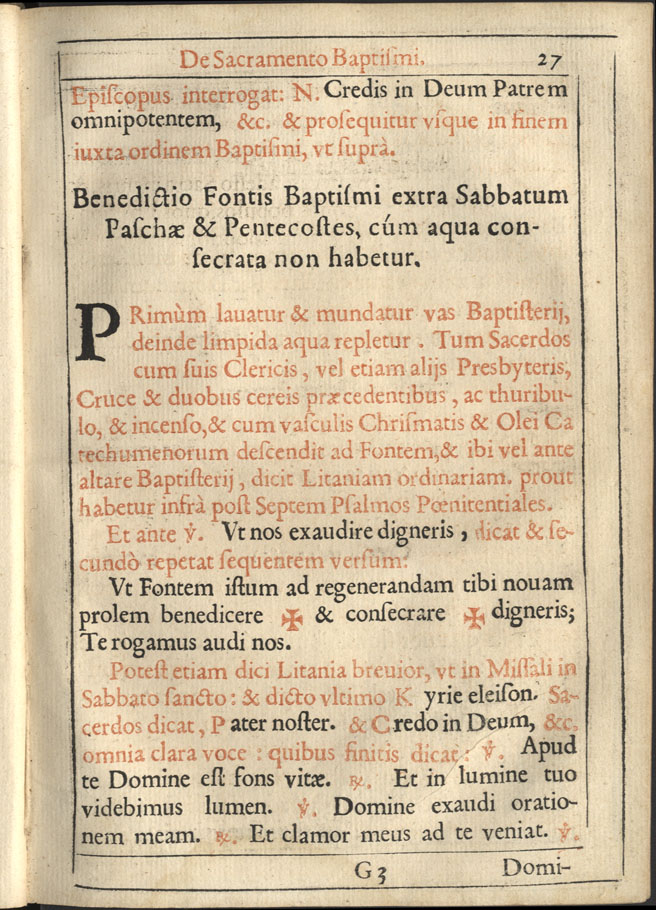 De Sacramento Baptiſmi, 27
Epiſcopus interrogat: N. Credis in Deum Patrem
omnipotentem, &c. & proſequitur vſque in finem
iuxta ordinem Baptiſmi, vt ſuprà.
Benedictio Fontis Baptiſmi extra Sabbatum
Paſchæ & Pentecoſtes, cúm aqua con-
ſecrata non habetur.
PRimùm lauatur & mundatur vas Baptiſterij,
deinde limpida aqua repletur . Tum Sacerdos
cum ſuis Clericis, vel etiam alijs Presbyteris,
Cruce & duobus cereis præcedentibus, ac thuribu-
lo, & incenſo, & cum vaſculis Chriſmatis & Olei Ca
techumenorum deſcendit ad Fontem, & ibi vel ante
altare Baptiſterij, dicit Litaniam ordinariam. prout
habetur infrà poſt Septem Pſalmos Pœnitentiales.
Et ante ℣. Vt nos exaudire digneris, dicat & ſe-
cundò repetat ſequentem verſum:
Vt Fontem iſtum ad regenerandam tibi nouam
prolem benedicere ✠ & conſecrare ✠ digneris;
Te rogamus audi nos.
Poteſt etiam dici Litania breuior, vt in Miſſali in
Sabbato ſancto: & dicto vltimo Kyrie eleiſon. Sa-
cerdos dicat, Pater noſter. & Credo in Deum, &c.
omnia clara voce : quibus finitis dicat: ℣. Apud
te Domine eſt fons vitæ. ℞. Et in lumine tuo
videbimus lumen. ℣. Domine exaudi oratio-
nem meam. ℞. Et clamor meus ad te veniat. ℣.
G3 Domi-